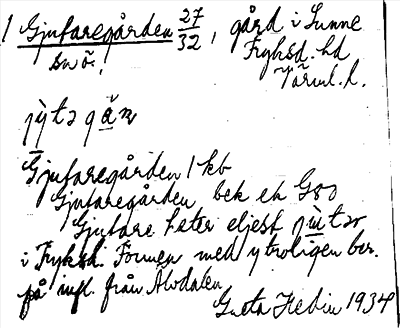 1 Gjutaregården 27/32, gård i Sunne
sv. ö. Fryksd. hd
Värml. l.
jy̆tə gān
Gjutaregården 1 kb
Gjutaregården bek ek G80
Gjutare heter eljest jutər
i Fryksd. Formen med y troligen ber.
på infl. från Älvdalen
Greta Hedin 1934